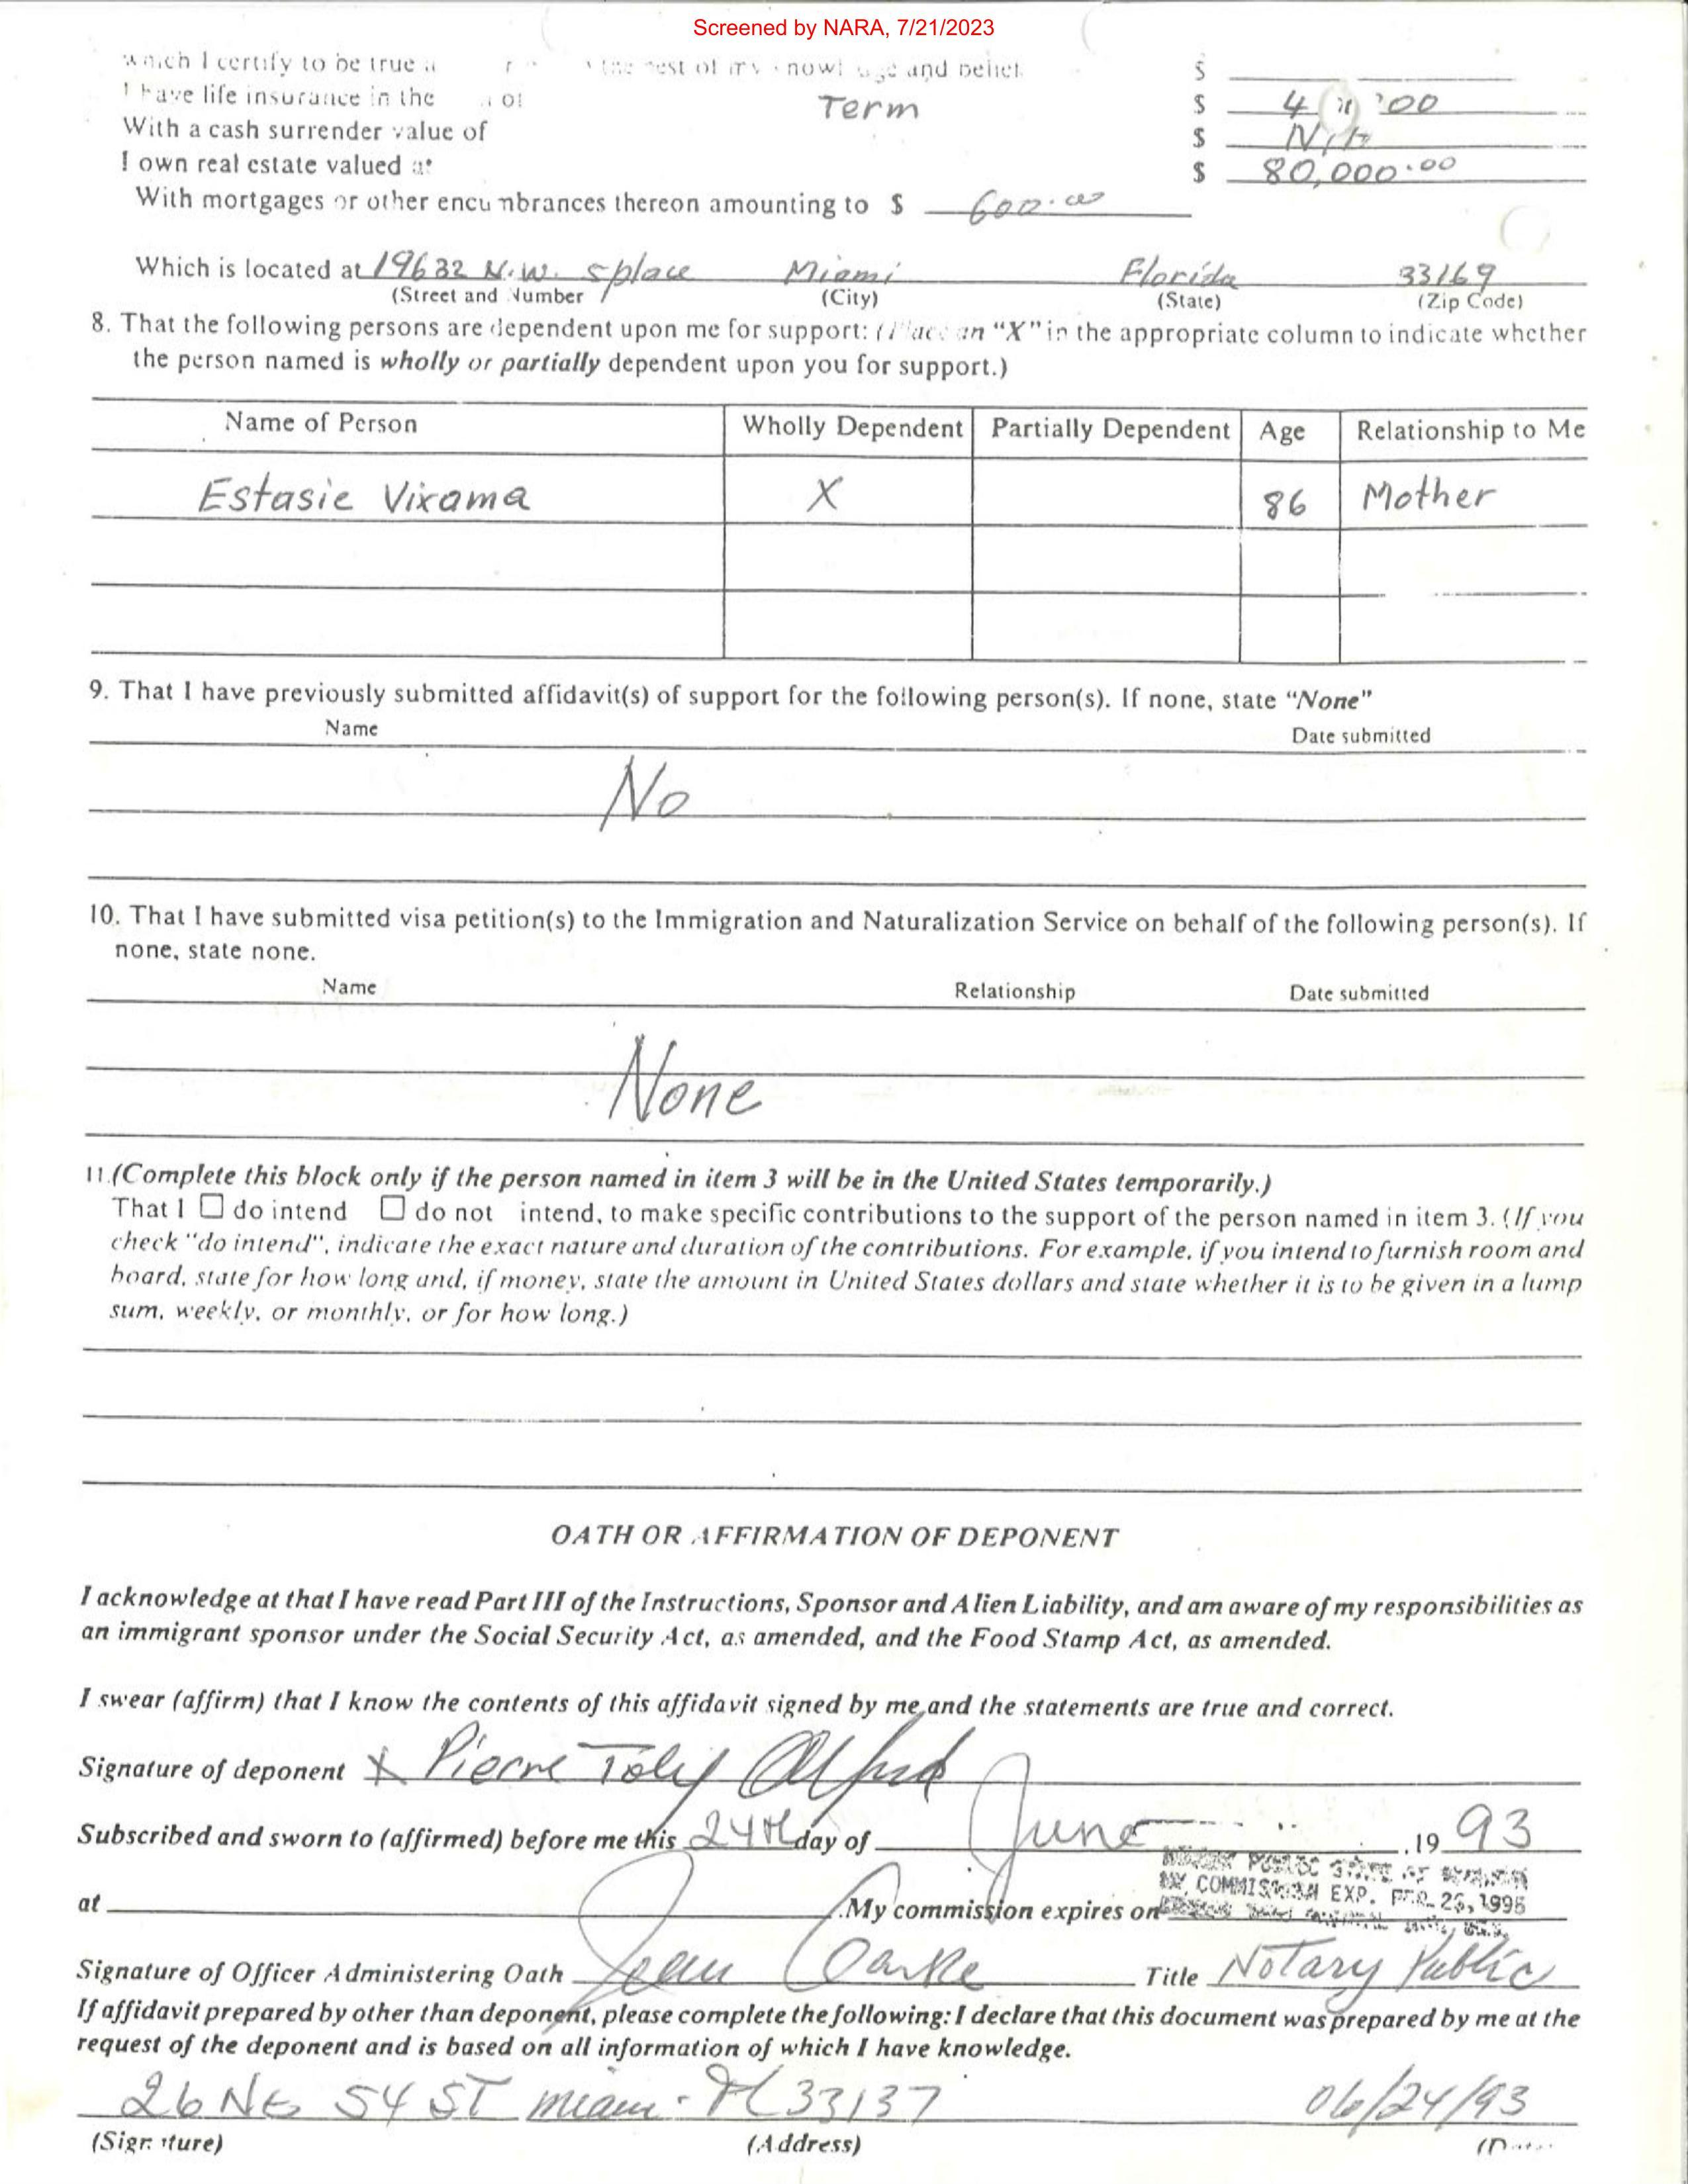 Screened by NARA, 7/21/2023
which I certify to be true best of my and belief
I have life insurance in the of Term $
With a cash surrender value of $
I own real estate valued at $ 80,000.00
With mortgages or other encumbrances thereon amounting to $ 600.00
Which is located at 19632 N.W. 5 place Miami Florida 33169
(Street and Number (City) (State) (Zip Code)
8. That the following persons are dependent upon me for support: (Place an "X" in the appropriate column to indicate whether
the person named is wholly or partially dependent upon you for support.)
Name of Person Wholly Dependent Partially Dependent Age Relationship to Me
Estasie Virama X 86 Mother
9. That I have previously submitted affidavit(s) of support for the following person(s). If none, state "None"
Name Date submitted
No
10. That I have submitted visa petition(s) to the Immigration and Naturalization Service on behalf of the following person(s). If
none, state none.
Name Relationship Date submitted
None
11.(Complete this block only if the person named in item 3 will be in the United States temporarily.)
That I do intend do not intend, to make specific contributions to the support of the person named in item 3. (If you
check "do intend", indicate the exact nature and duration of the contributions. For example, if you intend to furnish room and
board, state for how long and, if money, state the amount in United States dollars and state whether it is to be given in a lump
sum, weekly, or monthly, or for how long.)
OATH OR AFFIRMATION OF DEPONENT
I acknowledge at that I have read Part III of the Instructions, Sponsor and Alien Liability, and am aware of my responsibilities as
an immigrant sponsor under the Social Security Act, as amended, and the Food Stamp Act, as amended.
I swear (affirm) that I know the contents of this affidavit signed by me and the statements are true and correct.
Signature of deponent X Pierre Toly Alfred
Subscribed and sworn to (affirmed) before me this 24th day of June .19 93
PUBLIC STATE OF
MY COMMISSION EXP. 1995
at .My commission expires on
Signature of Officer Administering Oath Jean Title Notary Public
If affidavit prepared by other than deponent, please complete the following: I declare that this document was prepared by me at the
request of the deponent and is based on all information of which I have knowledge.
26 NE 54 ST Miami - Fl 33137 06/24/93
(Signature) (Address)